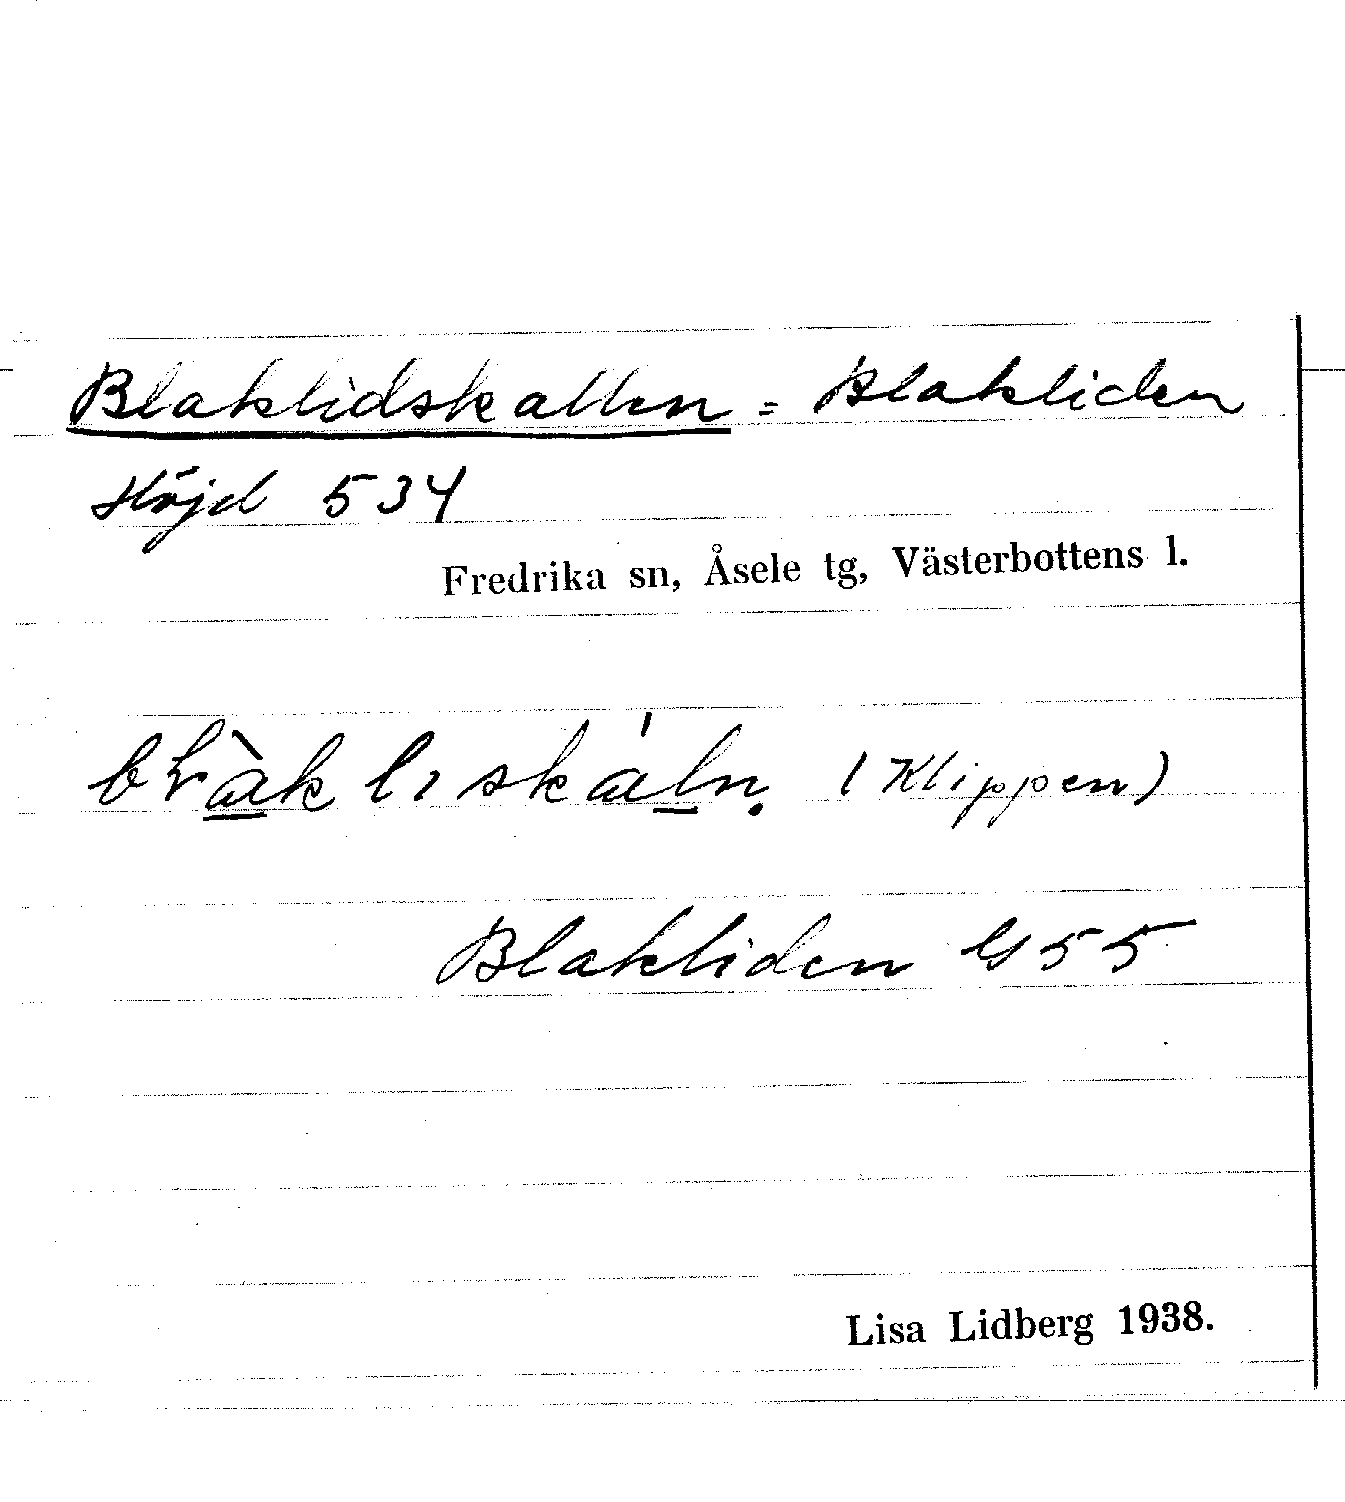 Blaklidskallen = Blakliden
Höjd 534
Fredrika sn, Åsele tg, Västerbottens l.
(Klippen)
Blakliden G55
Lisa Lidberg 1938.